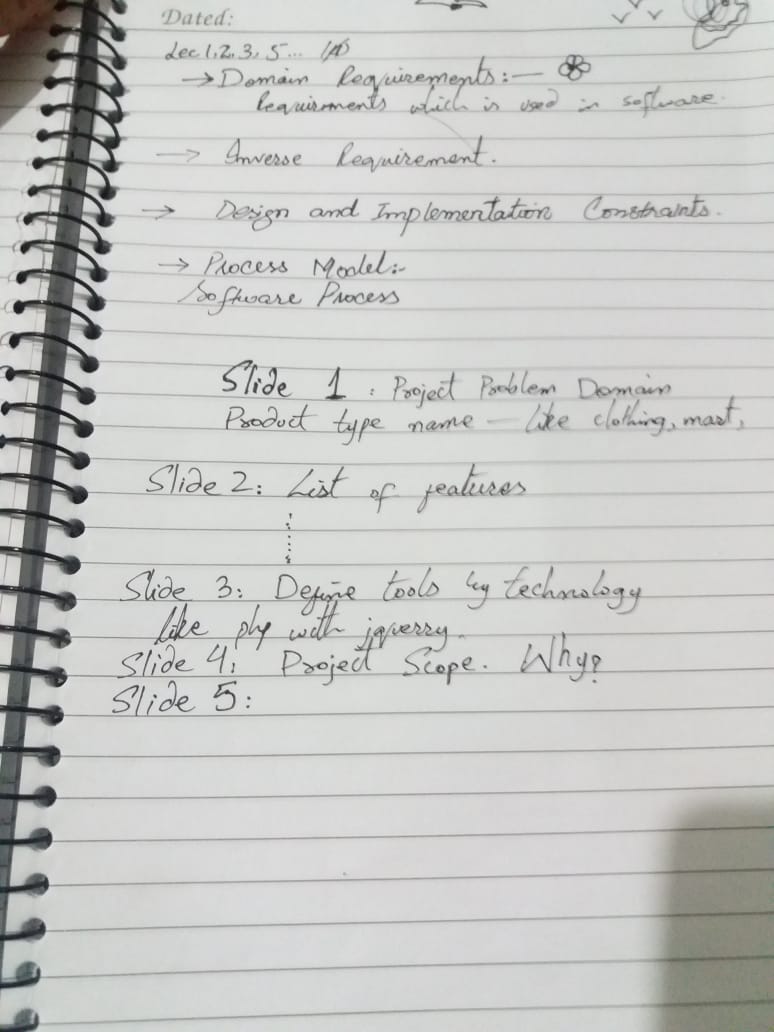 Dated:
Lec 1, 2, 3, 5...
→ Domain Requirements:—
Requirments which is used in software.
→ Inverse Requirement.
→ Design and Implementation Constraints.
→ Process Model:-
Software Process
Slide 1 : Project Problem Domain
Product type name — like clothing, mart,
Slide 2: List of features
Slide 3: Define tools by technology
like php with jquerry.
Slide 4: Project Scope. Why?
Slide 5: